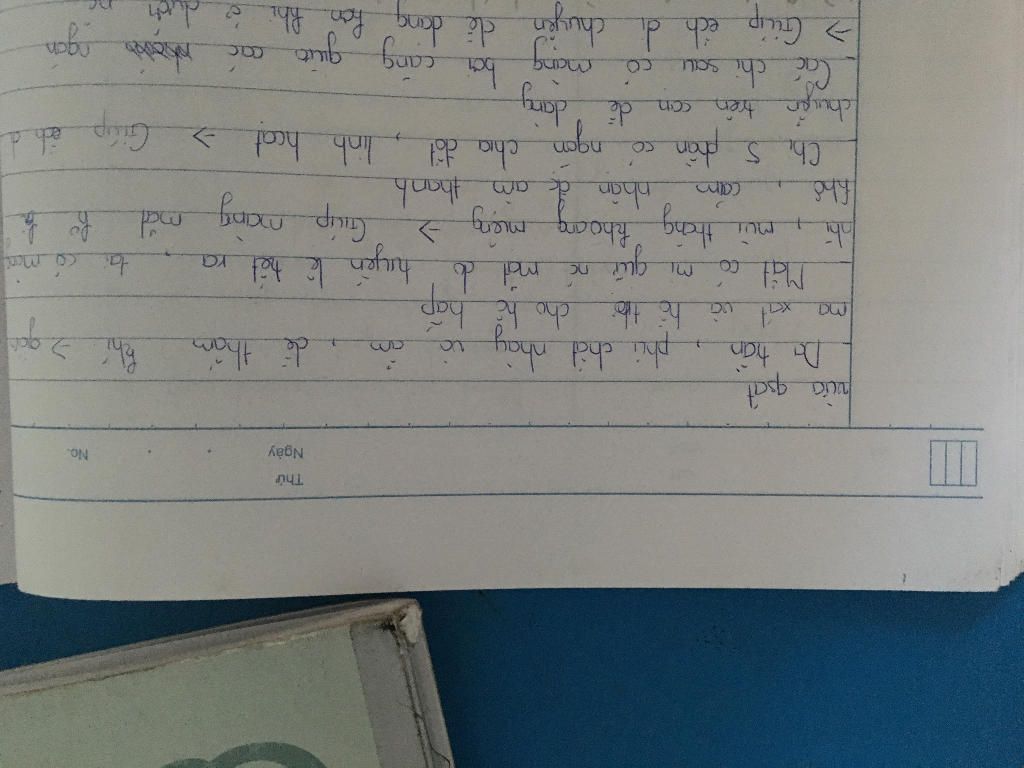 Thứ
Ngày
No.
vừa qsát
Da trần, phủ chất nhày và ẩm, dễ thấm khí →
ma xát và hô cho hấp
Mắt có mi giữ nc mắt do tuyến lệ tiết ra, tai có màng
nhĩ, mũi thông khoang miệng → Giúp màng mắt k bị
khô, cảm nhận đc âm thanh
Chi 5 phần có ngón chia đốt, linh hoạt → Giúp ếch d
chuyển trên cạn dễ dàng
Các chi sau có màng bơi căng giữa các ngón
→ Giúp ếch di chuyển dễ dàng hơn khi ở dưới nc